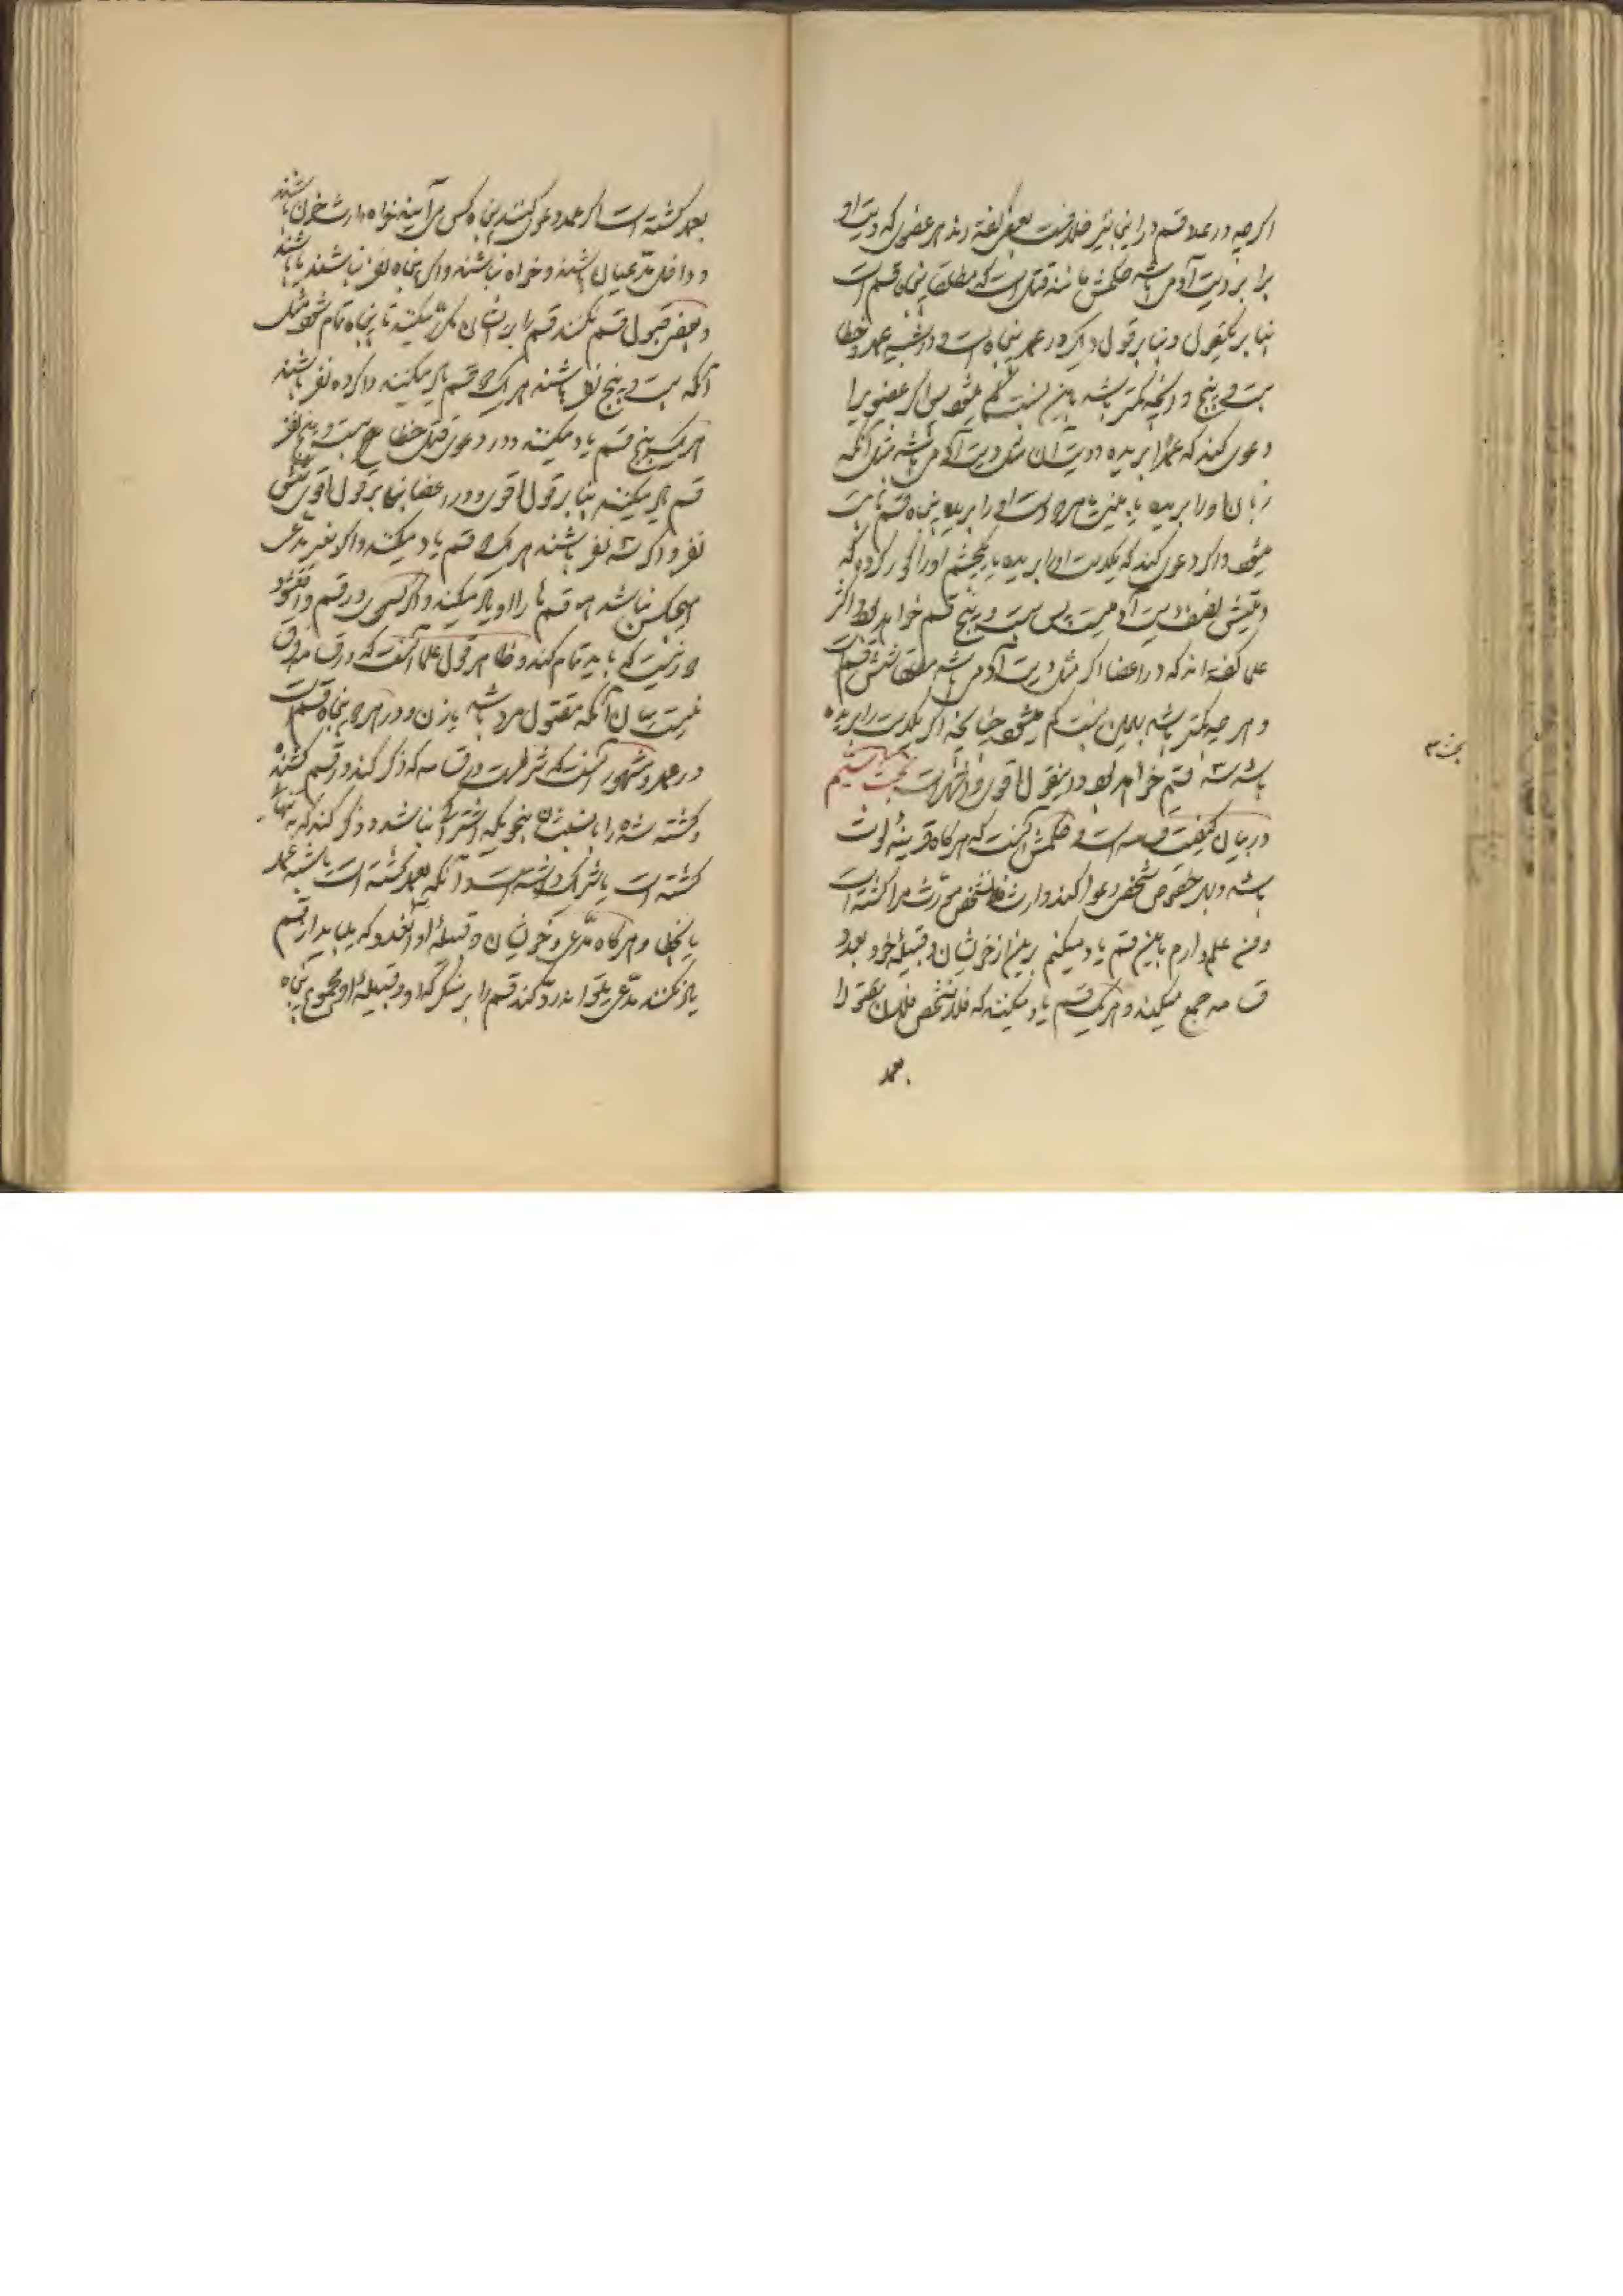 اگر چه در عدد قسم در اینجا نیز خلافست بعضی گفته اند هر عضوی که دیت او
برابر دیت آدمی باشد حکمش مانند قتل است که مطلقا پنجاه قسم است
بنا بر یکقول و بنا بر قول دیگر در عمد پنجاه است و در شبیه عمد و خطا
بیست و پنج و آنچه کمتر باشد باین نسبت کم میشود پس اگر عضویرا
دعوی کنند که عمدا بریده و دیت آن مثل دیت آدمی باشد مثل آنکه
زبان او را بریده یا بینیش یا هر دو دست او را بریده پنجاه قسم ثابت
میشود و اگر دعوی کند که یکدست او را بریده یا یکچشم او را کور کرده که
دیتش نصف دیت آدمیست پس بیست و پنج قسم خواهد بود و اکثر
علما گفته اند که در اعضا اگر مثل دیت آدمی باشد مطلقا شش قسم است
و هر چه کمتر باشد بهمین نسبت کم میشود چنانچه اگر یکدست را بریده
باشد سه قسم خواهد بود و اینقول اقوی و اشهر است بحث سیم
در بیان کیفیت قسامه است و حکمش آنست که هر گاه قرینهٔ لوث
باشد و بر خصوص شخصی دعوا کند وارث که فلانشخص مورث مرا کشته است
و من علم دارم باین قسم یاد میکنم پس از خویشان و قبیلهٔ خود بعدد
قسامه جمع میکند و هر یک قسم یاد میکنند که فلانشخص فلان مقتول را
بعمد
بحث سیم
بعمد کشته است اگر عمد دعوی کنند پنجاه کس هر آینه خواه وارث خون باشند
و داخل مدعیان باشند و خواه نباشند و اگر پنجاه نفر نباشند یا باشند
و بعضی قبول قسم نکنند قسم را بر ایشان مکرر میکنند تا پنجاه تمام شود مثل
آنکه بیست و پنج نفر باشند هر یک دو قسم یاد میکنند و اگر ده نفر باشند
هر یک پنج قسم یاد میکنند و در دعوی قتل خطا بیست و پنج نفر
قسم یاد میکنند بنا بر قول اقوی و در اعضا بنا بر قول اقوی شش
نفر و اگر سه نفر باشند هر یک دو قسم یاد میکنند و اگر بغیر مدعی
هیچکس نباشد همه قسم ها را او یاد میکند و اگر کسی در قسم واقع شود
لازم نیست که باید تمام کند و ظاهر قول علما آنست که در قسامه فرق
نیست میان آنکه مقتول مرد باشد یا زن و در هر دو پنجاه قسم است
در عمد و مشهور آنست که شرطست در قسامه که ذکر کند در قسم کشنده
و کشته شده را با نسب ایشان بنحویکه اشتراکی نباشد و ذکر کند که به تنهائی
کشته است یا شراکت داشته است و آنکه بعمد کشته است یا شبیه عمد
یا بخطا و هر گاه مدعی و خویشان و قبیلهٔ او آنقدر که میباید از قسم
یاد نکنند مدعی میتواند رد کند قسم را بر منکر که او و قبیلهٔ او مجموع پنجاه